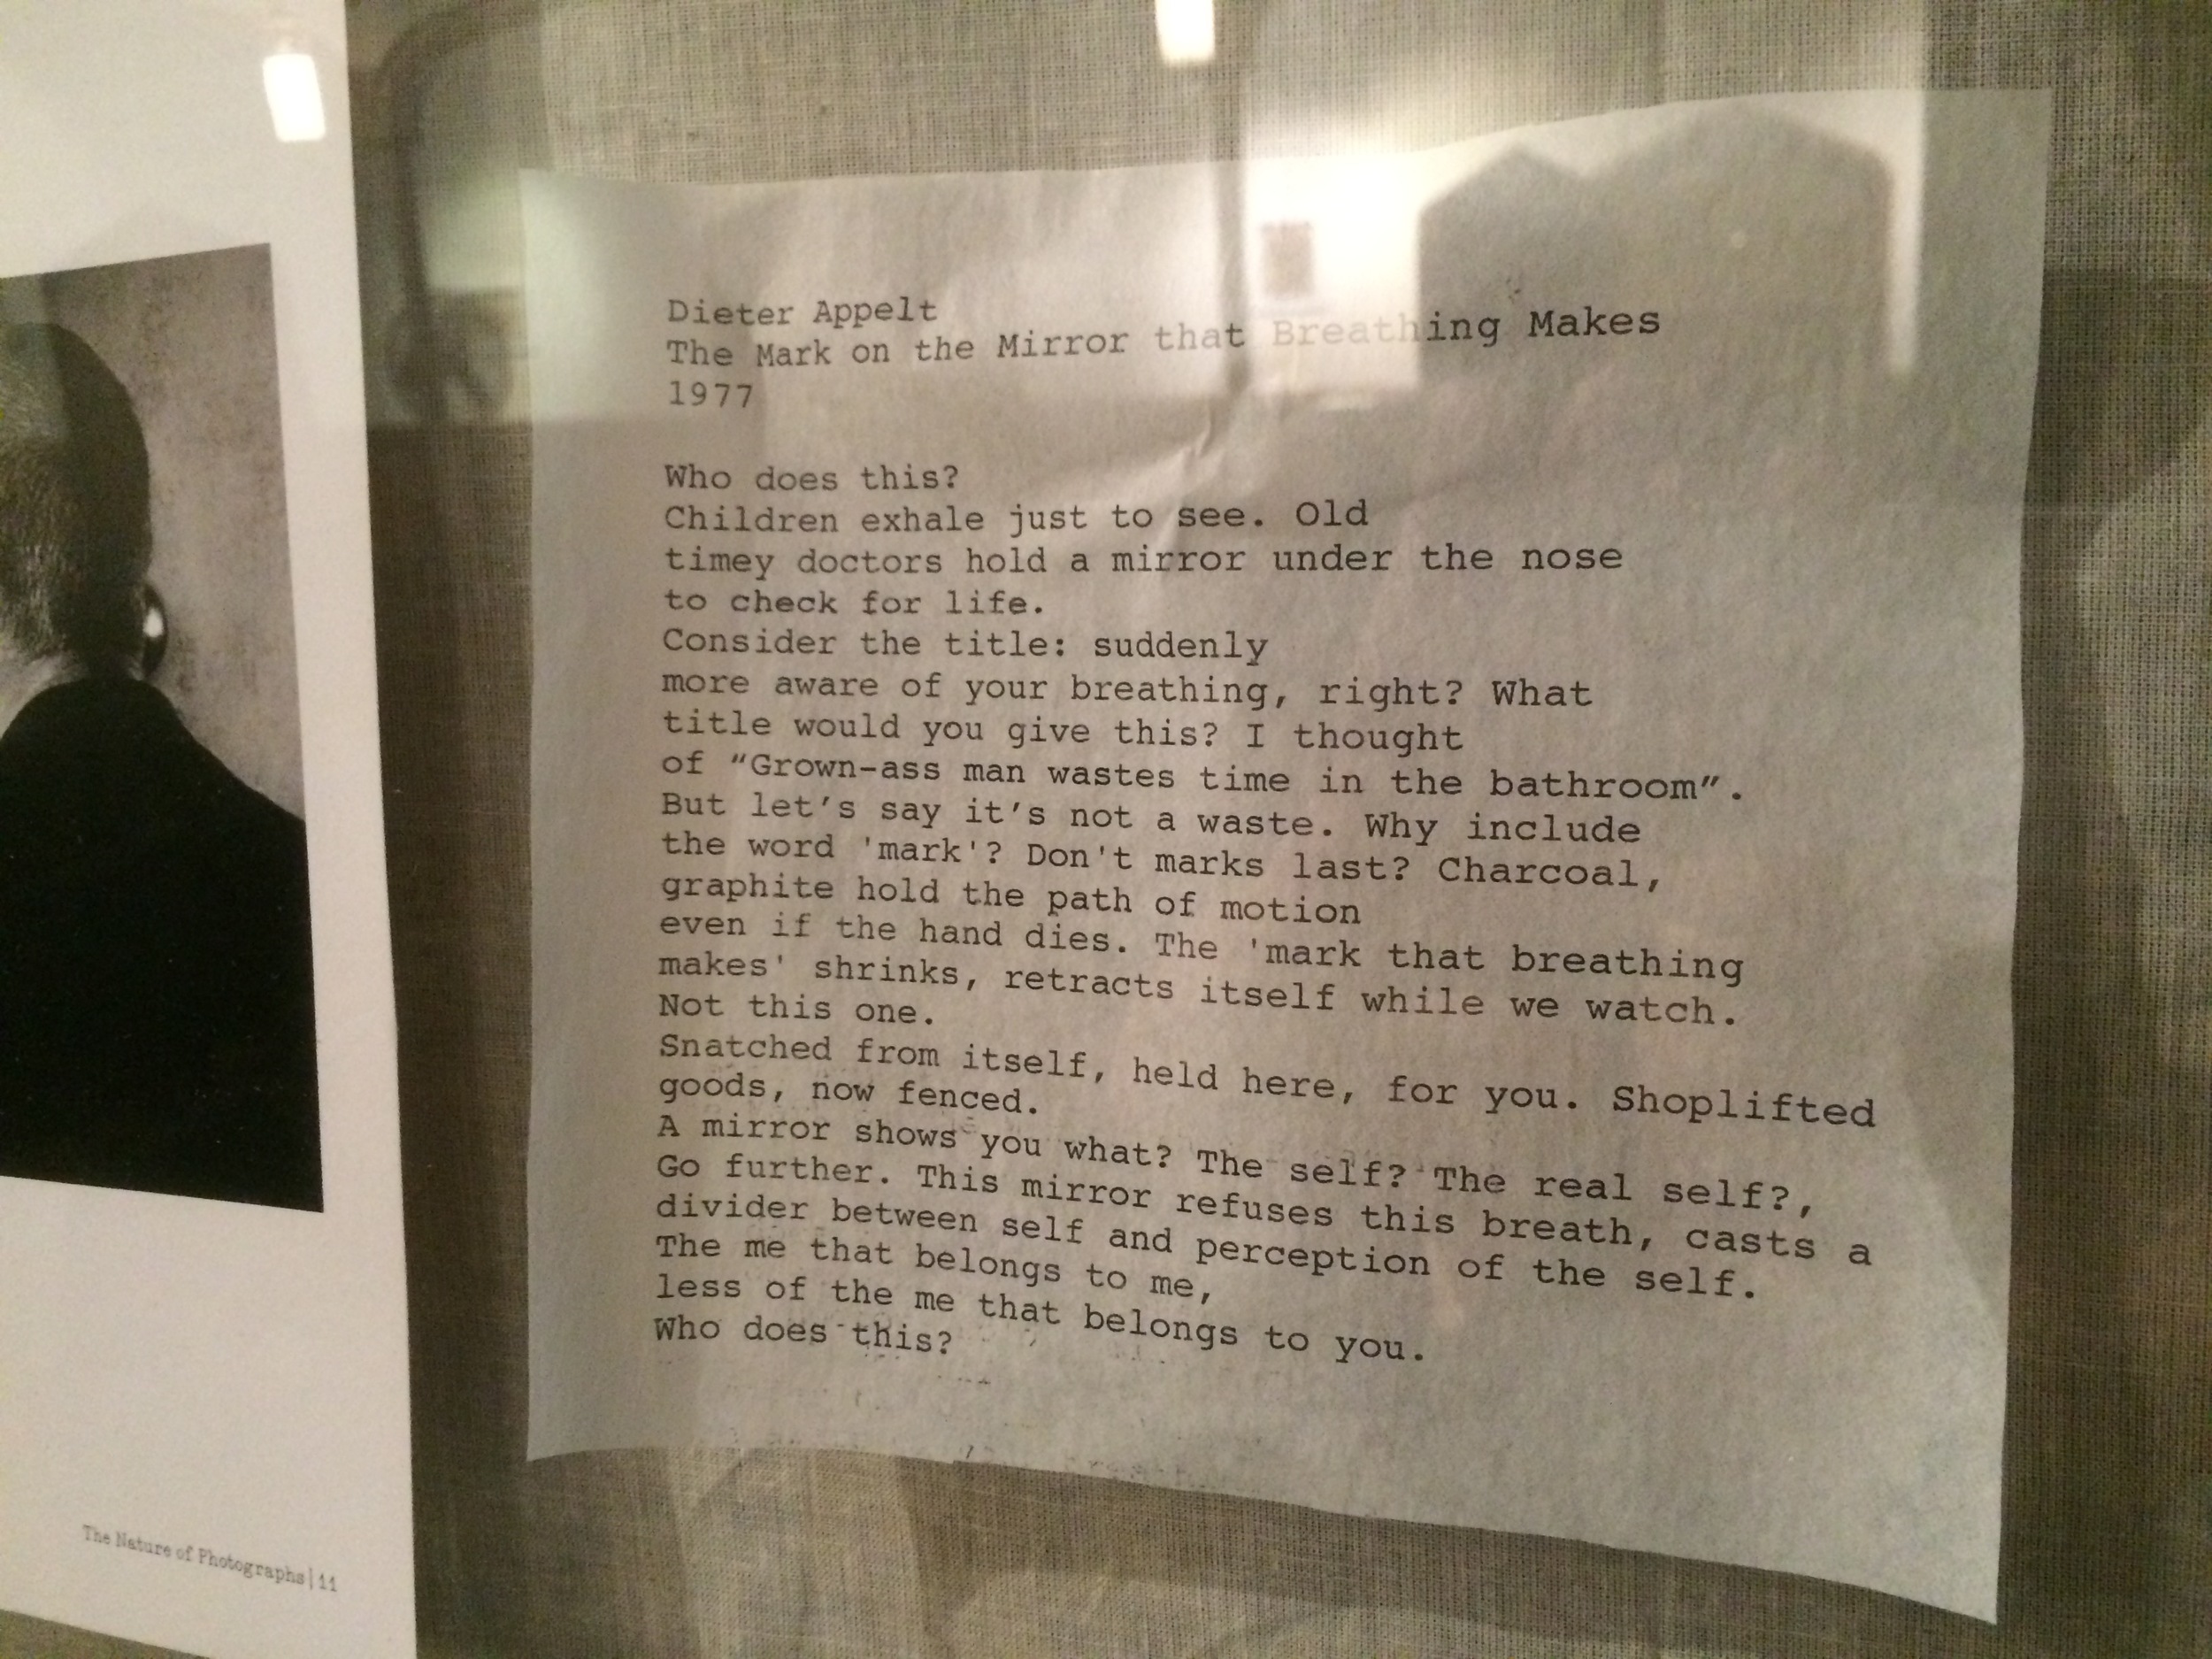 Dieter Appelt
The Mark on the Mirror that Breathing Makes
1977
Who does this?
Children exhale just to see. Old
timey doctors hold a mirror under the nose
to check for life.
Consider the title: suddenly
more aware of your breathing, right? What
title would you give this? I thought
of “Grown-ass man wastes time in the bathroom”.
But let’s say it’s not a waste. Why include
the word 'mark'? Don't marks last? Charcoal,
graphite hold the path of motion
even if the hand dies. The 'mark that breathing
makes' shrinks, retracts itself while we watch.
Not this one.
Snatched from itself, held here, for you. Shoplifted
goods, now fenced.
A mirror shows you what? The self? The real self?,
Go further. This mirror refuses this breath, casts a
divider between self and perception of the self.
The me that belongs to me,
less of the me that belongs to you.
Who does this?
The Nature of Photographs|11